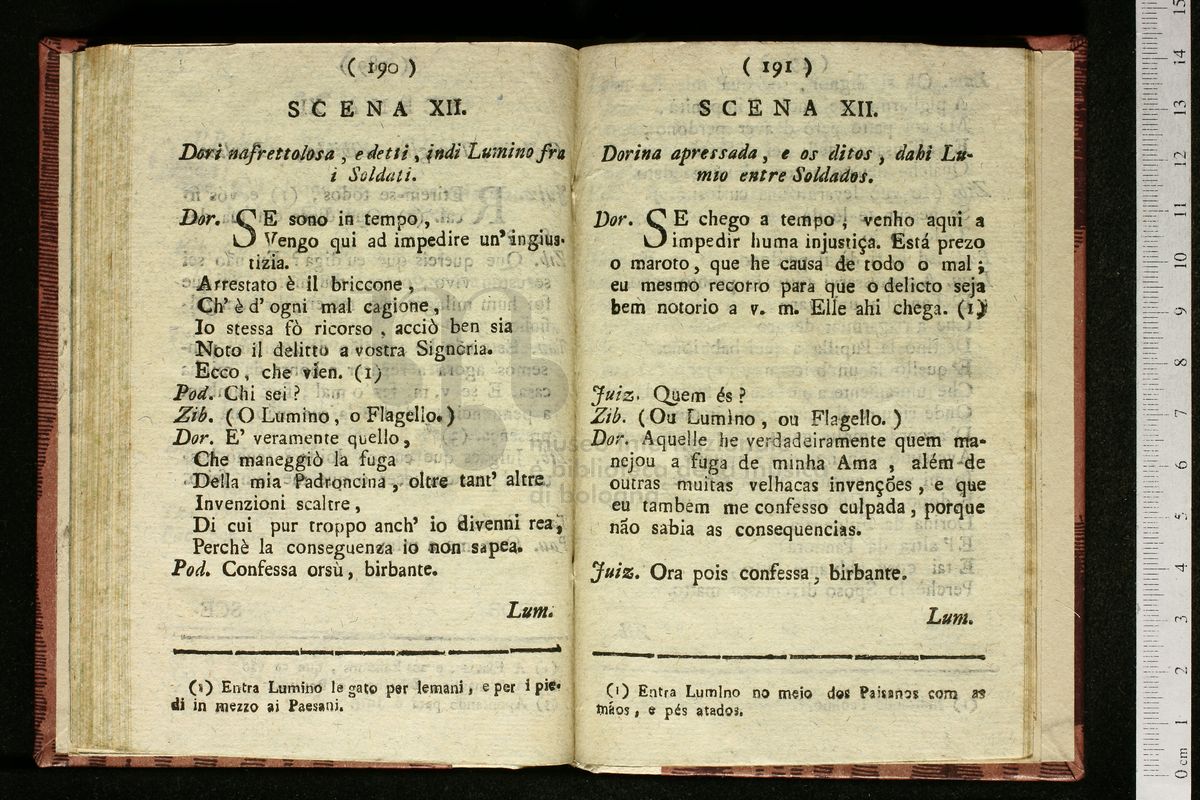 ( 190 )
SCENA XII.
Dori nafrettolosa , e detti , indi Lumino fra
i Soldati.
Dor. SE sono in tempo,
Vengo qui ad impedire un' ingius-
tizia.
Arrestato è il briccone ,
Ch' è d' ogni mal cagione ,
Io stessa fò ricorso , acciò ben sia
Noto il delitto a vostra Signoria.
Ecco , che vien. (1)
Pod. Chi sei ?
Zib. ( O Lumino , o Flagello. )
Dor. E' veramente quello ,
Che maneggiò la fuga
Della mia Padroncina , oltre tant' altre
Invenzioni scaltre ,
Di cui pur troppo anch' io divenni rea ,
Perchè la conseguenza io non sapea.
Pod. Confessa orsù , birbante.
Lum.
(1) Entra Lumino legato per lemani , e per i pie-
di in mezzo ai Paesani.
( 191 )
SCENA XII.
Dorina apressada , e os ditos , dahi Lu-
mio entre Soldados.
Dor. SE chego a tempo , venho aqui a
impedir huma injustiça. Está prezo
o maroto , que he causa de todo o mal ;
eu mesmo recorro para que o delicto seja
bem notorio a v. m. Elle ahi chega. (1)
Juiz. Quem és ?
Zib. ( Ou Lumino , ou Flagello. )
Dor. Aquelle he verdadeiramente quem ma-
nejou a fuga de minha Ama , além de
outras muitas velhacas invenções , e que
eu tambem me confesso culpada , porque
não sabia as consequencias.
Juiz. Ora pois confessa , birbante.
Lum.
(1) Entra Lumlno no meio dos Paisanos com as
mãos , e pés atados.
museo
e biblioteca
di bologna
0 cm 1 2 3 4 5 6 7 8 9 10 11 12 13 14 15